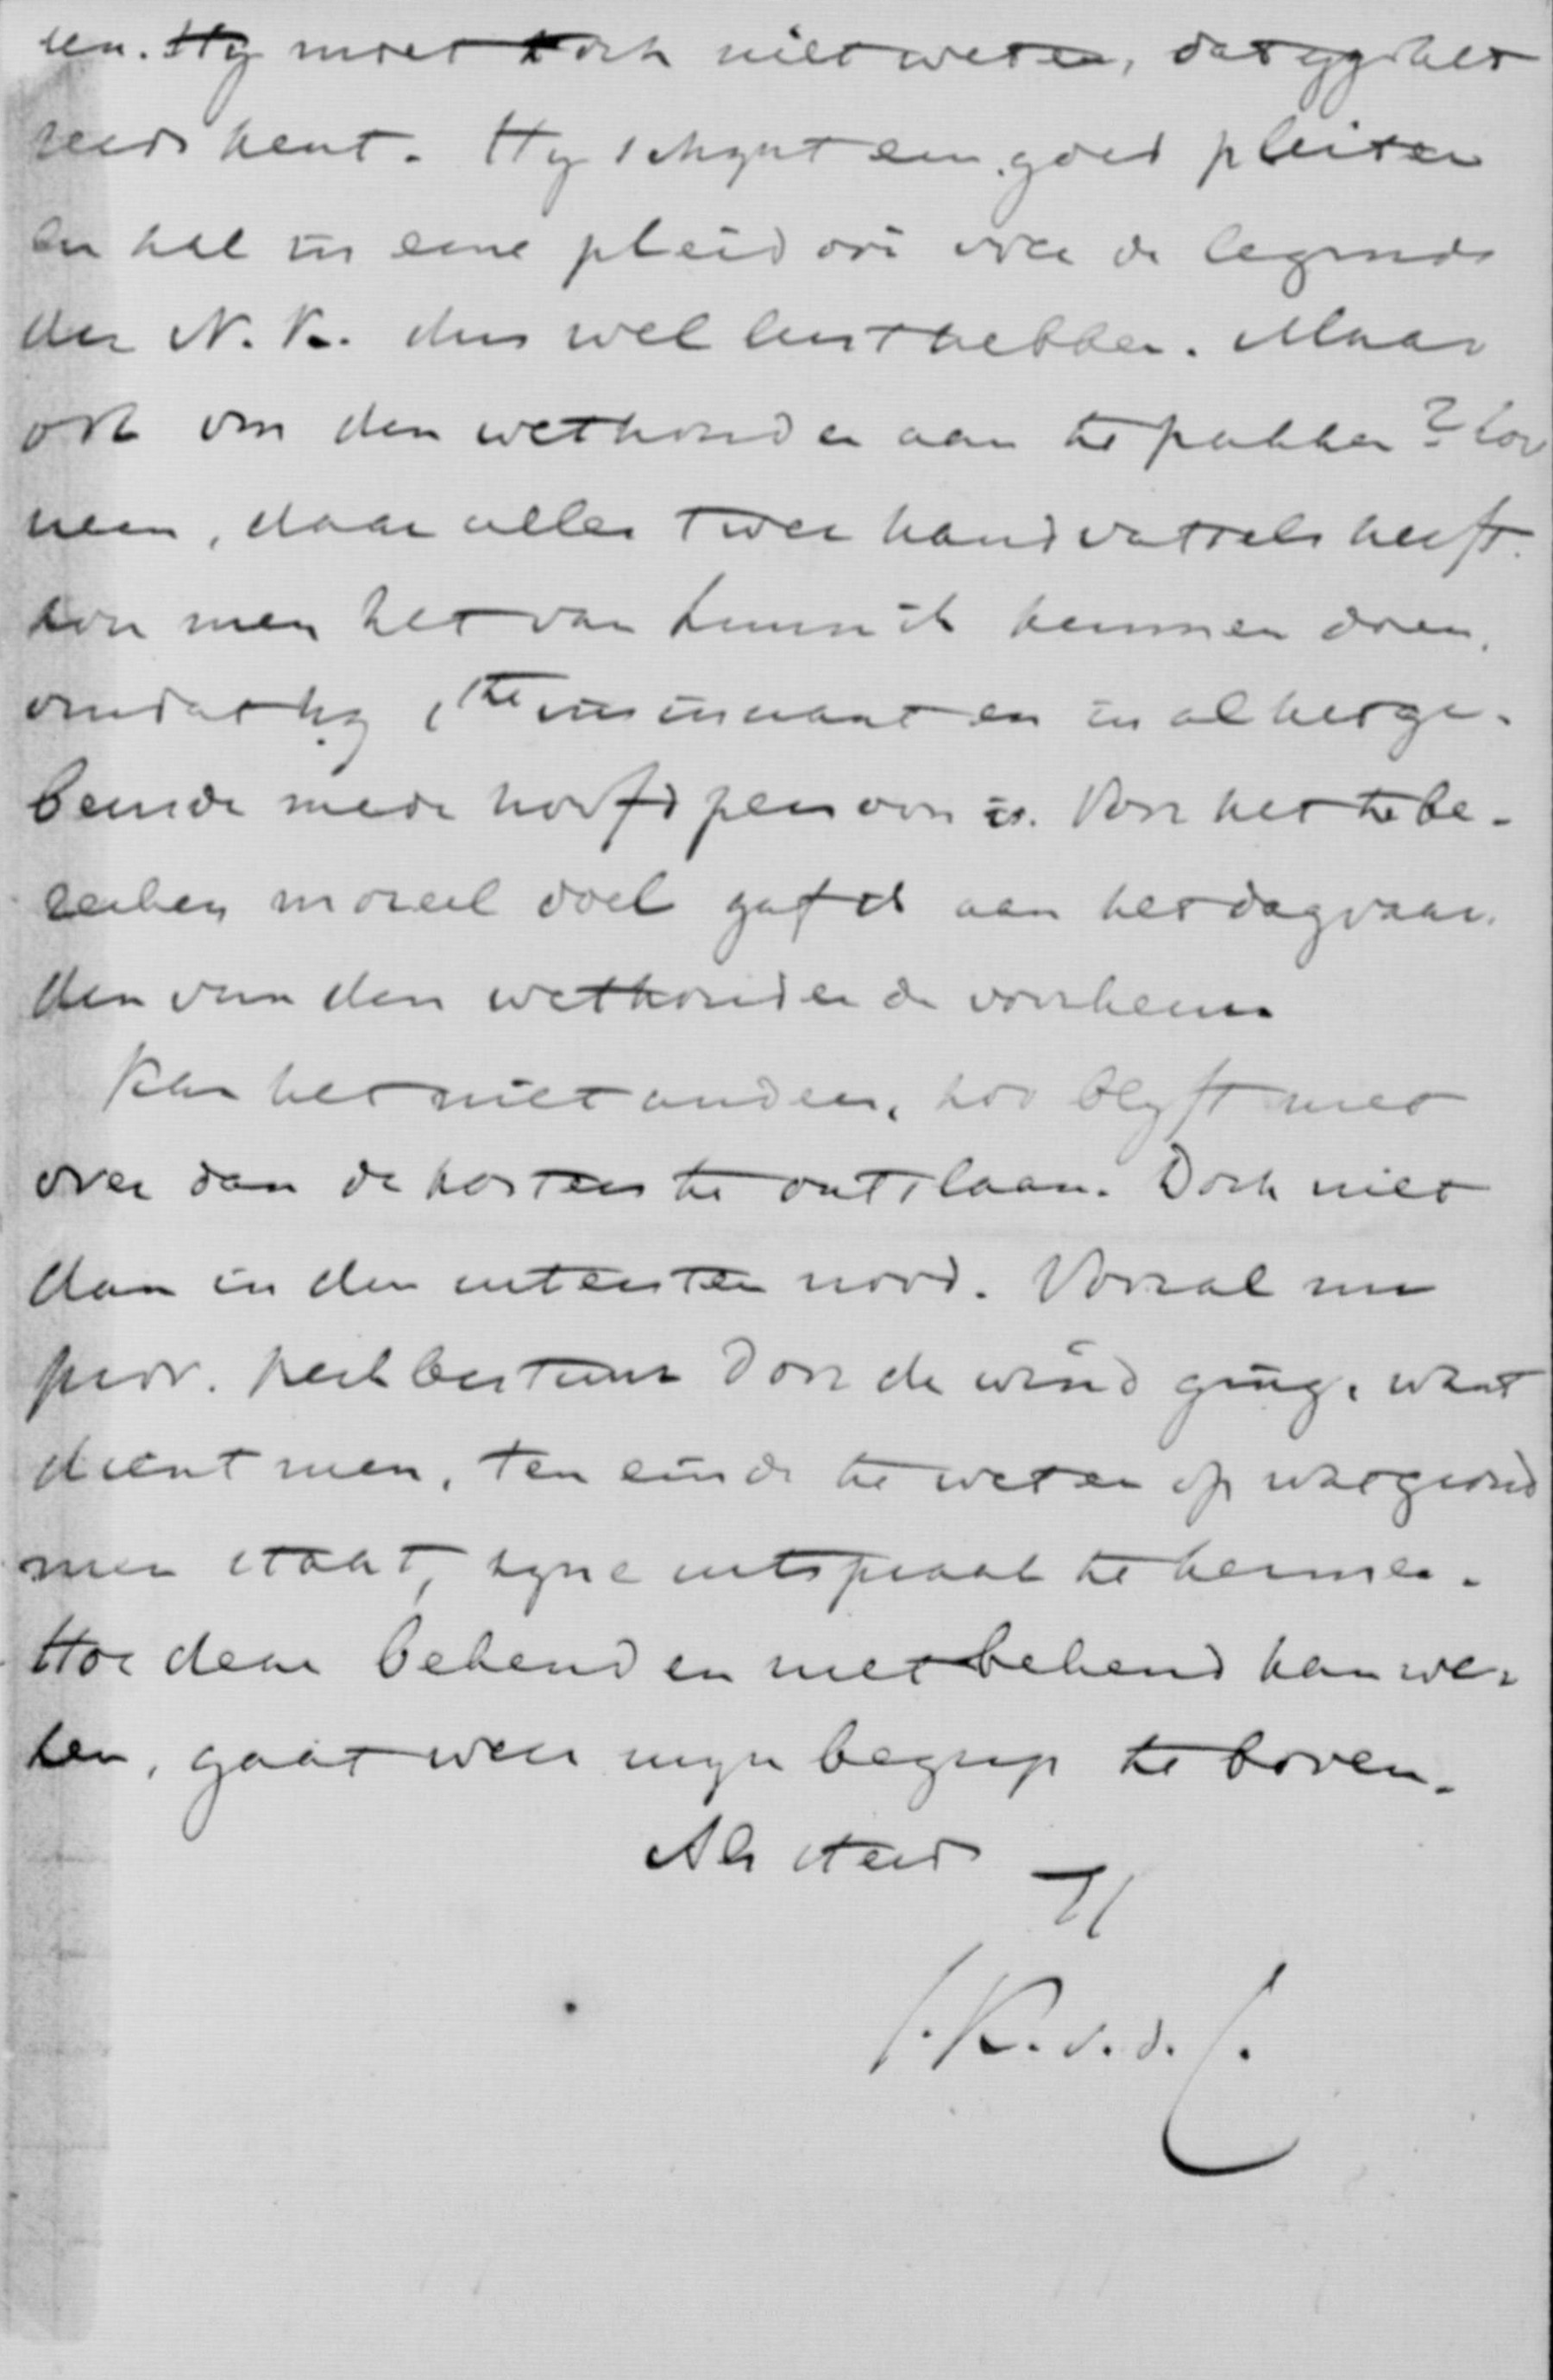 ren. Hy moet toch niet weten, dat gy het
reeds kent. Hy schynt een goed pleiter
en zal in eene pleidooi over de legende
der N. K. dus wel lust hebben. Maar
ook om den wethouder aan te pakken? Zoo
neen, daar alles twee handvatsels heeft.
zou men het van kunnen doen,
omdat hy en in al het ge-
beurde mede hoofdpersoon is. Voor het te be-
reiken moreel doel gaf ik aan het dagvaar-
den van den wethouder de voorkeur
Kan het niet anders, zoo blyft niet
over dan de kosters te ontslaan. Doch niet
dan in den uitersten nood. Vooral nu
prov. kerkbestuur door de wind ging, want
dient men, ten einde te weten op wat grond
men staat, zyne uitspraak te kennen.
Hoe deze bekend en niet bekend kan we-
zen, gaat weer myn begrip te boven.
Als steeds
tt
K. v. d.